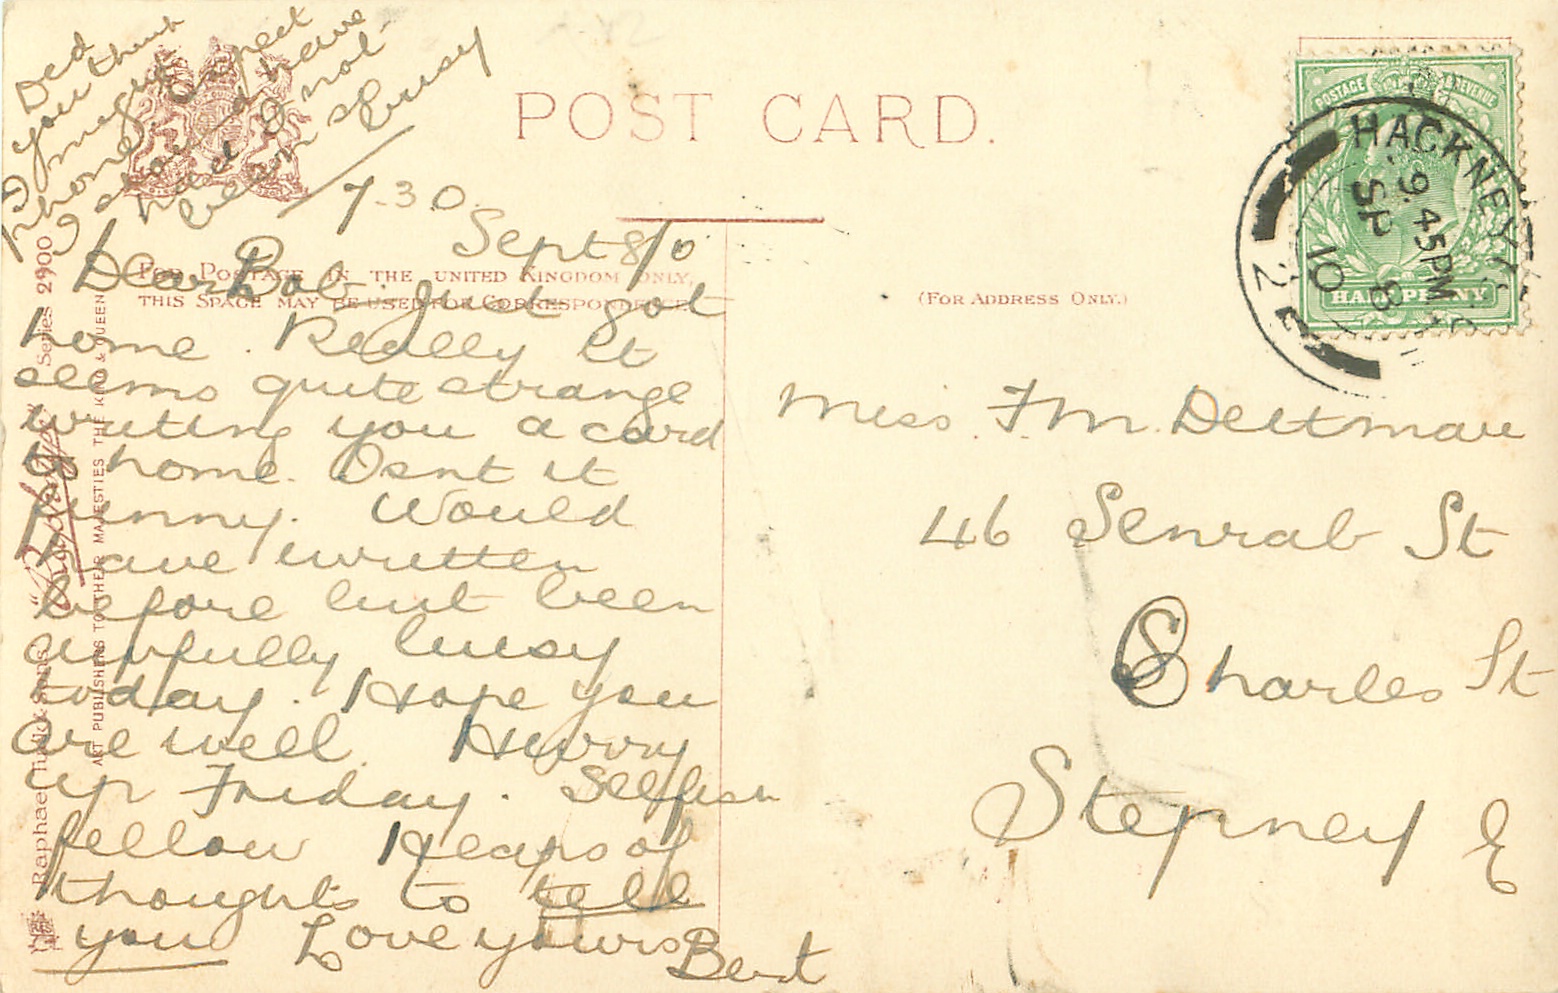 Did
you think
I might
phone. expect
I should have
had I not
been so busy
POST CARD.
7-30
Sept 8/10
FOR POSTAGE IN THE UNITED KINGDOM ONLY,
THIS SPACE MAY BE USED FOR CORRESPONDENCE
(FOR ADDRESS ONLY.)
Dear Bob. Just got
home. Really it
seems quite strange
writing you a card
to home. Isnt it
funny. Would
have written
before but been
awfully busy
today. Hope you
are well. Hurry
up Friday. Selfish
fellow Heaps of
thoughts to tell
you Love yours Bert
Miss. F M. Dettmar
46 Senrab St
Charles St
Stepney E
POSTAGE & REVENUE
HALFPENNY
HACKNEY
9.45PM
SP 8
10
Raphael Tuck & Sons' "Rapholette" Series 2900
ART PUBLISHERS TO THEIR MAJESTIES THE KING & QUEEN